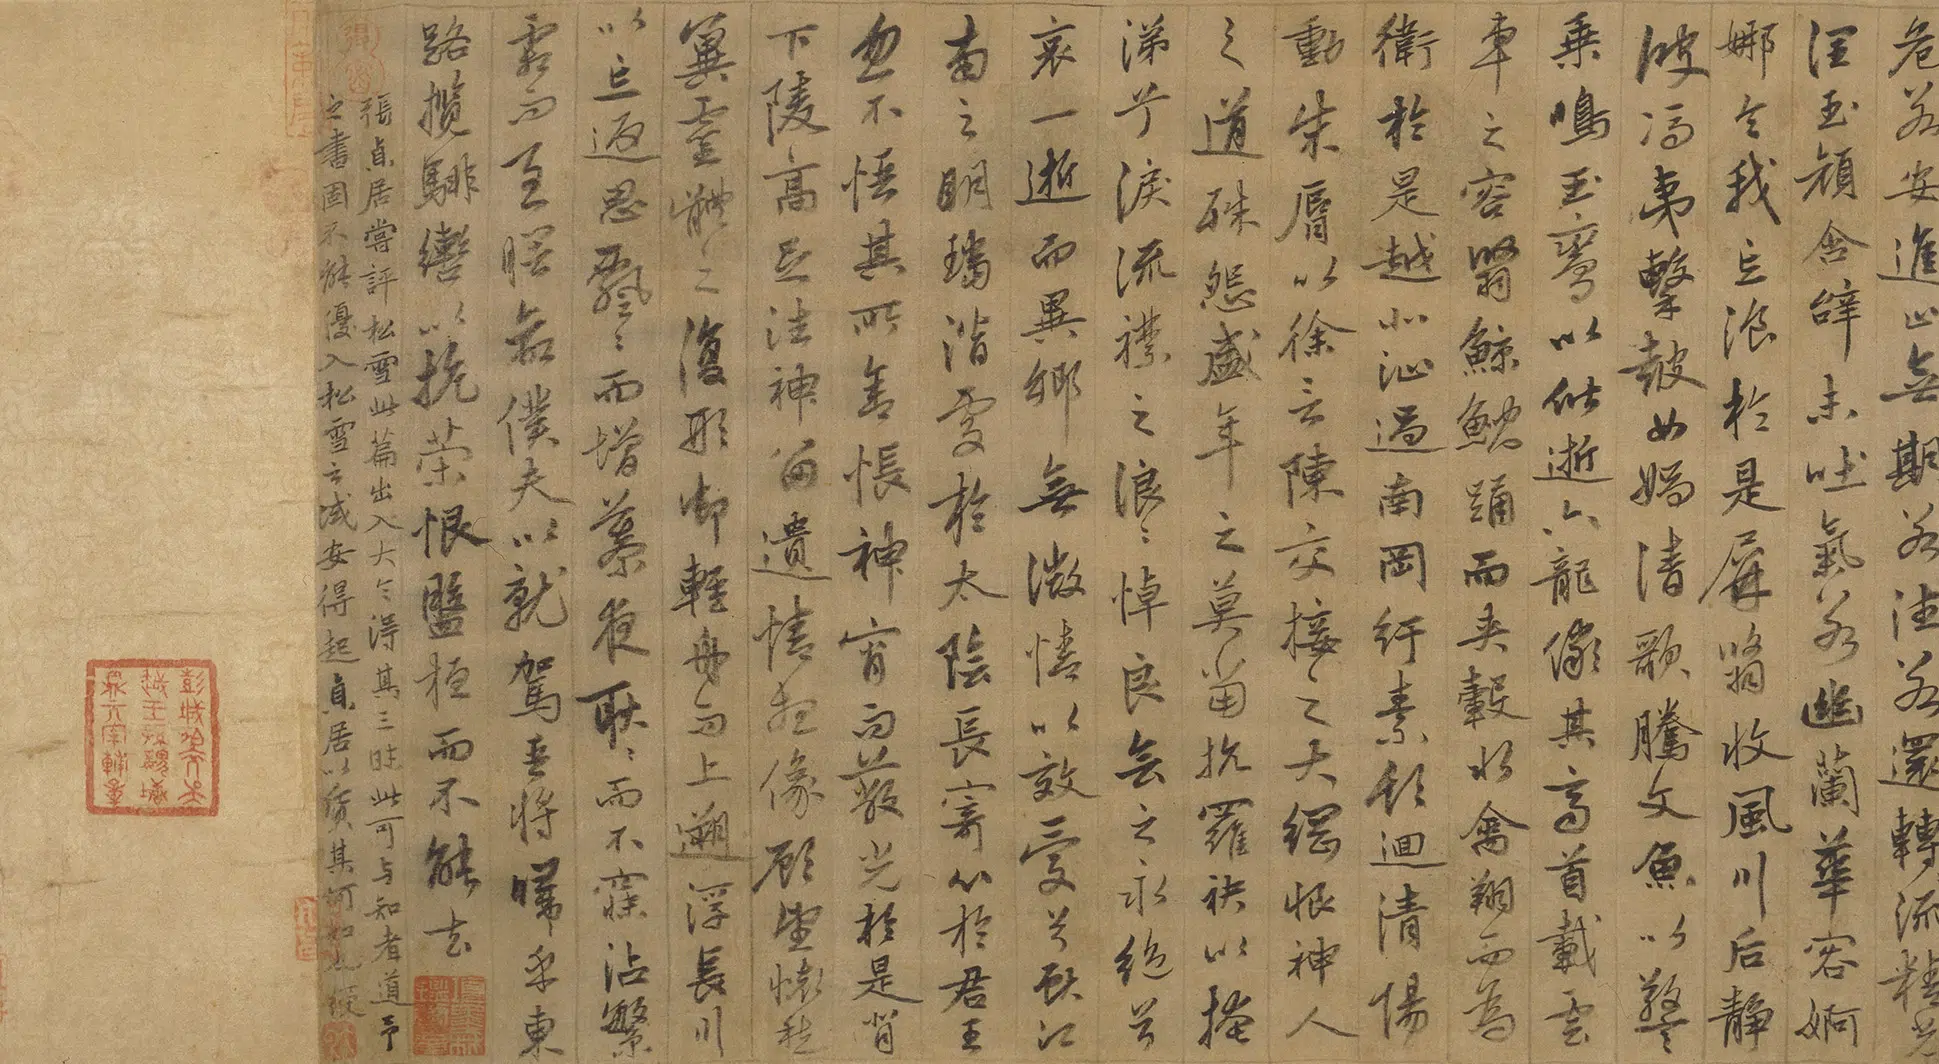 危若安進止無期若往若還轉流精光
潤玉顏含辭未吐氣若幽蘭華容婀
娜令我忘湌於是屏翳收風川后靜
波馮夷擊鼓女媧清歌騰文魚以警
乘鳴玉鸞以偕逝六龍儼其齊首載雲
車之容翳鯨鯢踊而夾轂水禽翔而為
衛於是越北沚過南岡紆素領迴清陽
動朱脣以徐言陳交接之大綱恨神人
之道殊怨盛年之莫當抗羅袂以掩
涕兮淚流襟之浪〻悼良會之永絕兮
哀一逝而異鄉無微情以效愛兮獻江
南之明璫潛處於太陰長寄心於君王
忽不悟其所舍悵神宵而蔽光於是背
下陵高足往神留遺情想像顧望懷愁
冀靈體之復形御輕舟而上遡浮長川
以忘返思飄〻而增慕夜耿〻而不寐沾繁
霜而至曙命僕夫以就駕吾將歸乎東
路攬騑轡以抗策恨盤桓而不能去
張貞居嘗評松雪此篇出入大令得其三昧此可与知者道予
之書固不能優入松雪之域安得起貞居以質其何如也